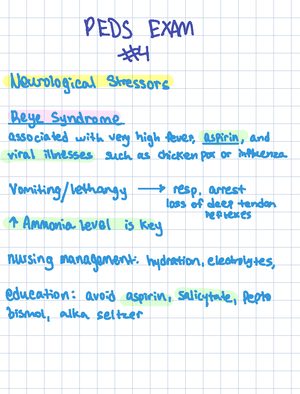 PEDS EXAM
#4
Neurological Stressors
Reye Syndrome
associated with very high fever, aspirin, and
viral illnesses such as chicken pox or influenza
Vomiting/lethargy → resp. arrest
loss of deep tendon
reflexes
↑ Ammonia level is key
nursing management: hydration, electrolytes,
education: avoid aspirin, salicytate, Pepto
bismol, alka seltzer